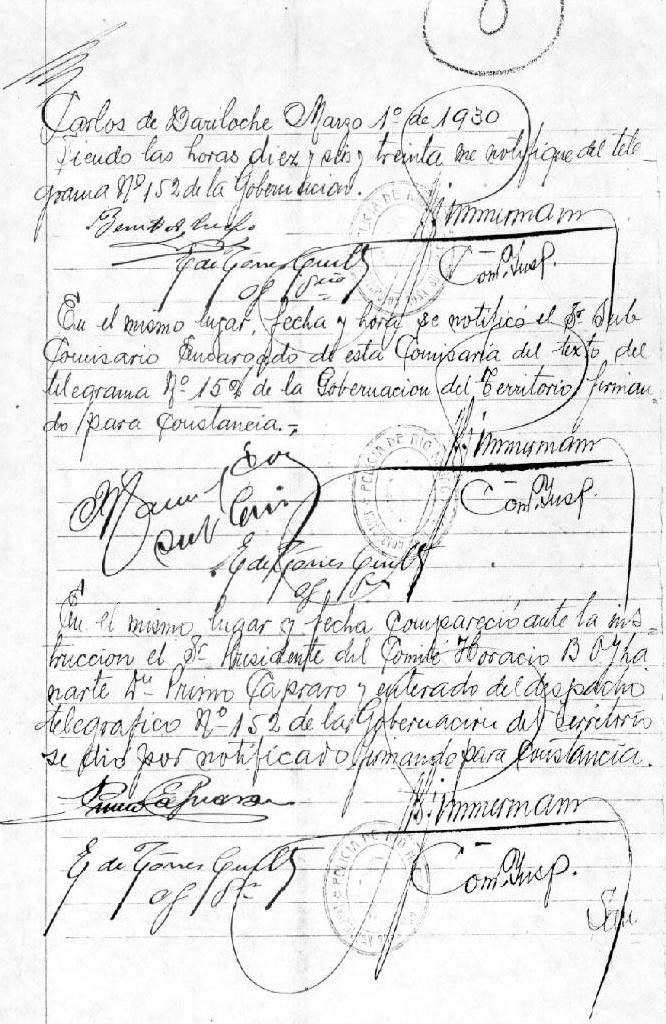 Carlos de Bariloche Marzo 1º de 1930
Siendo las horas diez y seis y treinta me notifique del tele-
grama Nº 152 de la Gobernacion.
Zimmermann
Com. Insp.
E de Torres
of
En el mismo lugar, fecha y hora se notificó el Sr Sub
Comisario Encargado de esta Comisaria del texto del
telegrama Nº 152 de la Gobernacion del Territorio firman-
do para constancia.-
Zimmermann
POLICIA DE RIO
Com. Insp.
Manuel
Sub Comis
E de Torres
of
En el mismo lugar y fecha compareció ante la ins-
truccion el Sr Presidente del Comité Horacio B Oyha
narte Dn Primo Capraro y enterado del despacho
telegrafico Nº 152 de la Gobernacion del Territorio
se dio por notificado firmando para constancia.
Primo Capraro
Zimmermann
POLICIA DE RIO
E de Torres
of
Com. Insp.
San